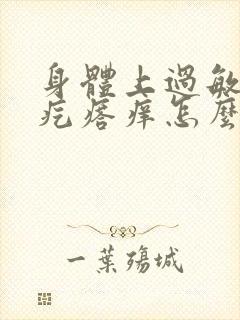 身體上過敏
疙瘩癢怎麼
一葉殤城